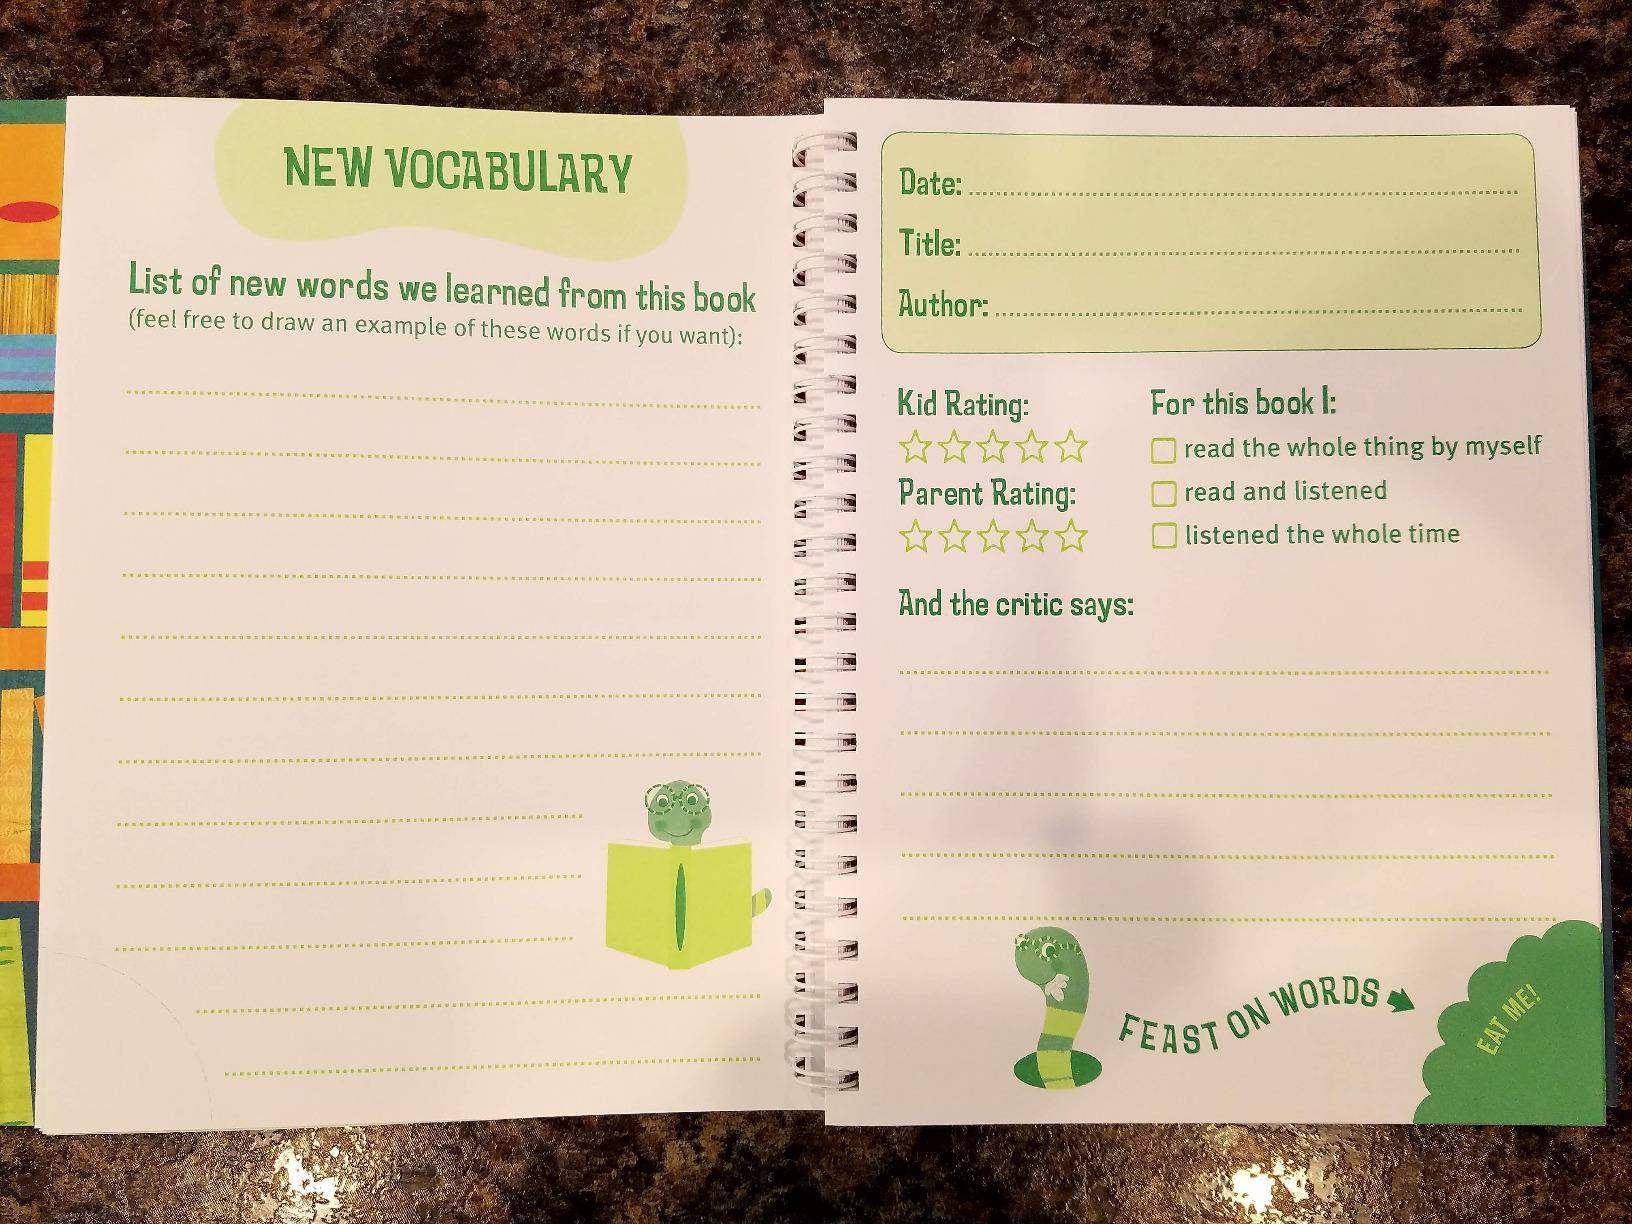 NEW VOCABULARY
List of new words we learned from this book
(feel free to draw an example of these words if you want):
Date:
Title:
Author:
Kid Rating:
Parent Rating:
For this book I:
read the whole thing by myself
read and listened
listened the whole time
And the critic says:
FEAST ON WORDS
EAT ME!